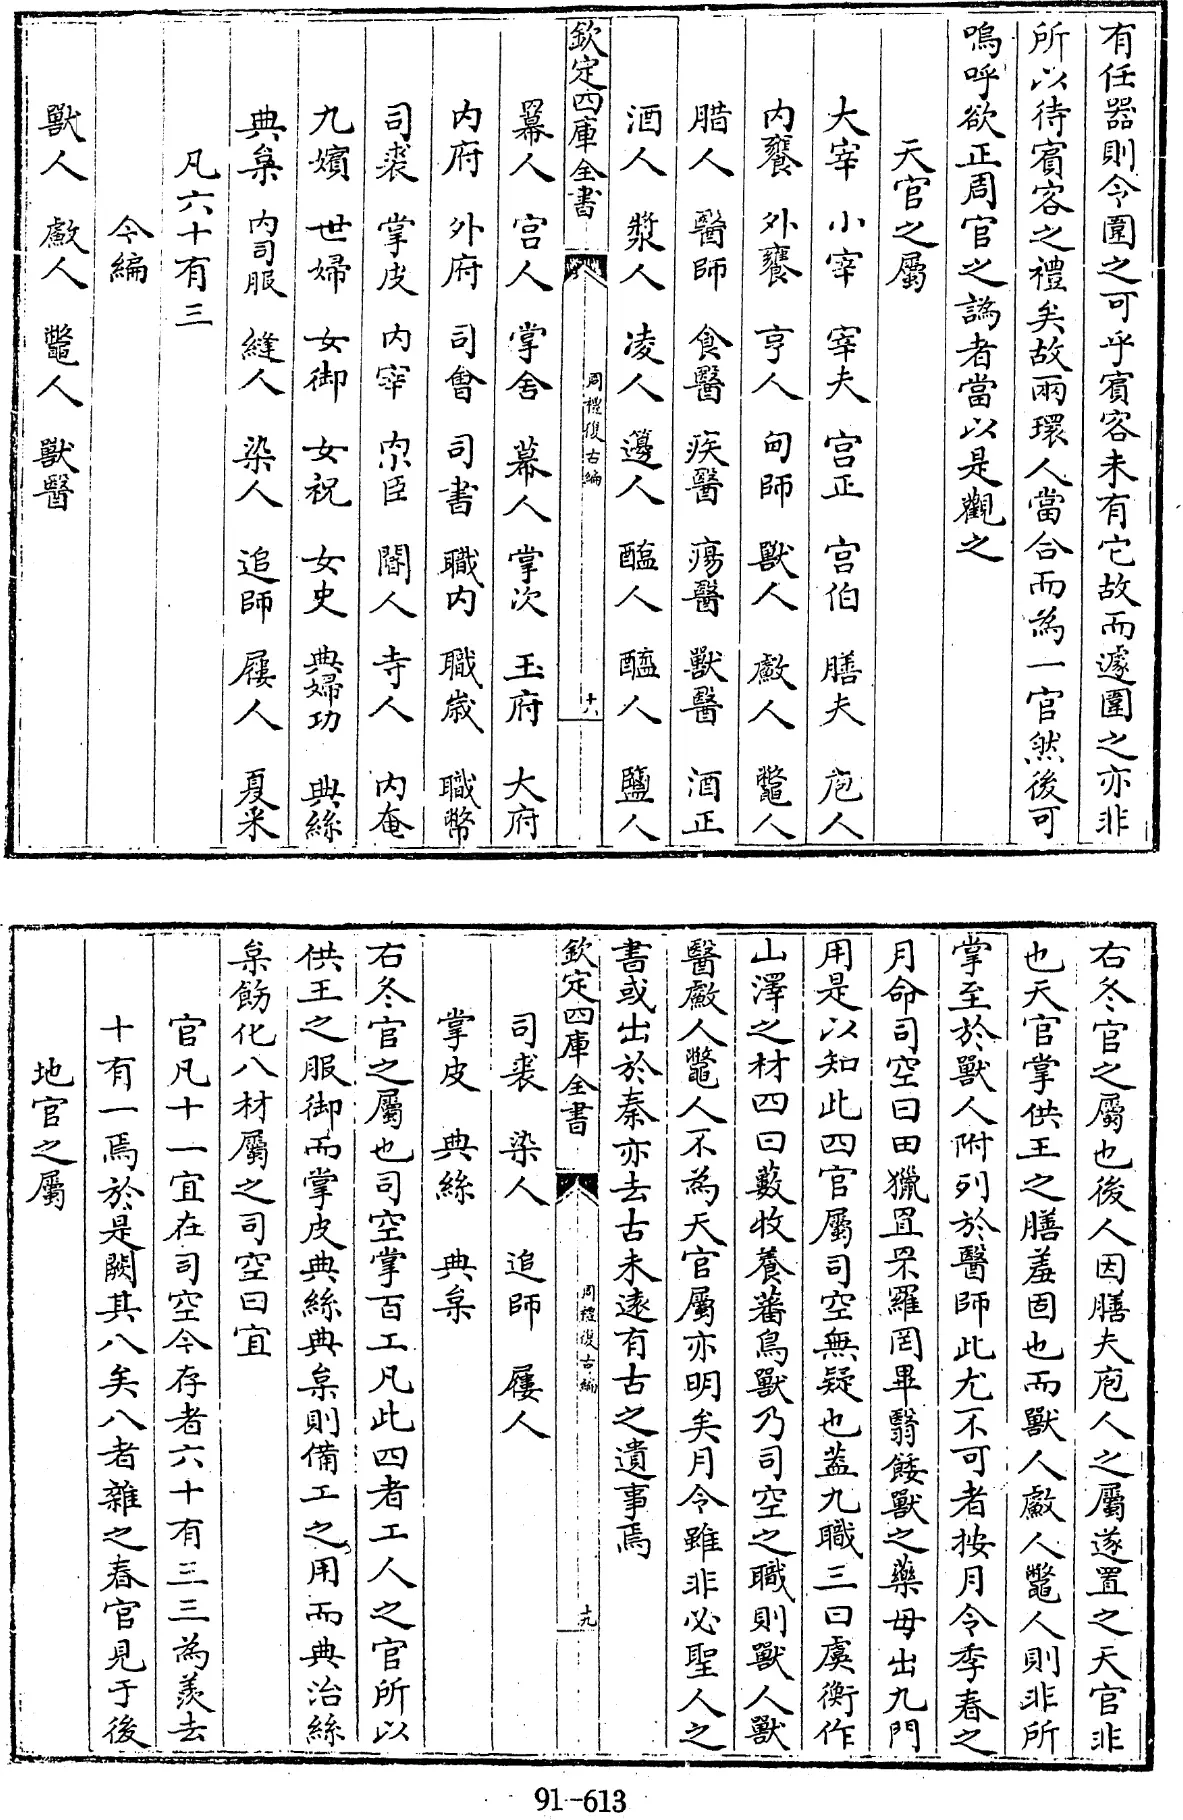 有任器則令圍之可乎賓客未有它故而遽圍之亦非
所以待賓客之禮矣故兩環人當合而為一官然後可
嗚呼欲正周官之譌者當以是觀之
天官之屬
大宰 小宰 宰夫 宫正 宫伯 膳夫 庖人
内饔 外饔 亨人 甸師 獸人 䱷人 鼈人
腊人 醫師 食醫 疾醫 瘍醫 獸醫 酒正
酒人 漿人 凌人 籩人 醢人 醯人 鹽人
欽定四庫全書 周禮復古編 十八
冪人 宫人 掌舍 幕人 掌次 玉府 大府
内府 外府 司㑹 司書 職内 職歳 職幣
司裘 掌皮 内宰 内小臣 閽人 寺人 内奄
九嬪 世婦 女御 女祝 女史 典婦功 典絲
典枲 内司服 縫人 染人 追師 屨人 夏采
凡六十有三
今編
獸人 䱷人 鼈人 獸醫
右冬官之屬也後人因膳夫庖人之屬遂置之天官非
也天官掌供王之膳羞固也而獸人䱷人鼈人則非所
掌至於獸人附列於醫師此尤不可者按月令季春之
月命司空曰田獵罝罘羅罔畢翳餧獸之藥毋出九門
用是以知此四官屬司空無疑也葢九職三曰虞衡作
山澤之材四曰藪牧養蕃鳥獸乃司空之職則獸人獸
醫䱷人鼈人不為天官屬亦明矣月令雖非必聖人之
書或出於秦亦去古未逺有古之遺事焉
欽定四庫全書 周禮復古編 十九
司裘 染人 追師 屨人
掌皮 典絲 典枲
右冬官之屬也司空掌百工凡此四者工人之官所以
供王之服御而掌皮典絲典枲則備工之用而典治絲
枲飭化八材屬之司空曰宜
官凡十一宜在司空今存者六十有三三為羨去
十有一焉於是闕其八矣八者雜之春官見于後
地官之屬
91-613